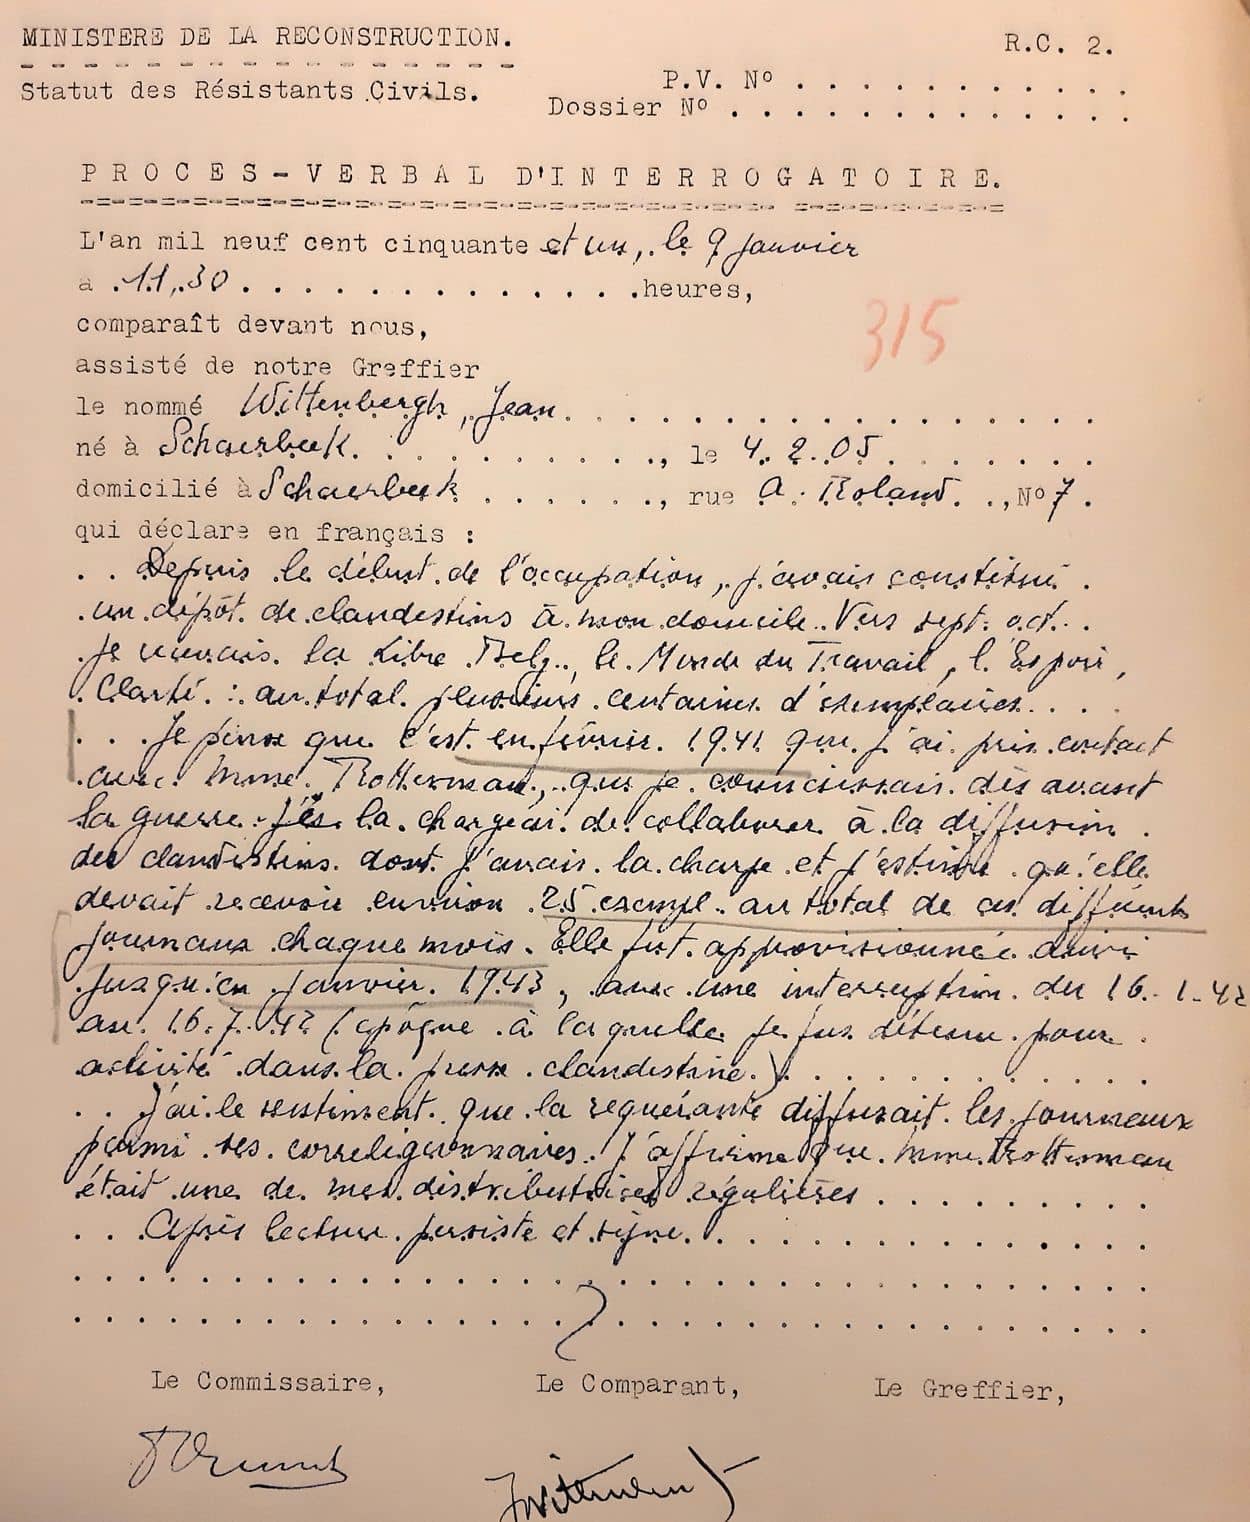 MINISTERE DE LA RECONSTRUCTION.
R.C. 2.
Statut des Résistants Civils.
P.V. Nº . . . . . . . . . . . .
Dossier Nº . . . . . . . . . . . . .
PROCES-VERBAL D'INTERROGATOIRE.
L'an mil neuf cent cinquante et un, le 9 janvier
à 11,30 . . . . . . . . . . . . . . heures,
comparaît devant nous,
315
assisté de notre Greffier
le nommé Wittenbergh, Jean
né à Schaerbeek, le 4.2.05
domicilié à Schaerbeek, rue A. Roland, Nº 7.
qui déclare en français :
Depuis le début de l'occupation, j'avais constitué
un dépôt de clandestins à mon domicile. Vers sept. oct.
je recevais la Libre Belg., le Monde du Travail, l'Espoir,
Clarté : au total plusieurs centaines d'exemplaires.
Je pense que c'est en février 1941 que j'ai pris contact
avec Mme Trotterman, que je connaissais dès avant
la guerre. Je la chargeai de collaborer à la diffusion
des clandestins dont j'avais la charge et j'estime qu'elle
devait recevoir environ 25 exempl. au total de ces différents
journaux chaque mois. Elle fut approvisionnée ainsi
jusqu'en janvier 1943, avec une interruption du 16-1-42
au 16-7-42 (époque à laquelle je fus détenu pour
activité dans la presse clandestine.)
J'ai le sentiment que la requérante diffusait les journaux
parmi ses correligionnaires. J'affirme que Mme Trotterman
était une de mes distributrices régulières
Après lecture persiste et signe.
Le Commissaire,
Le Comparant,
Le Greffier,